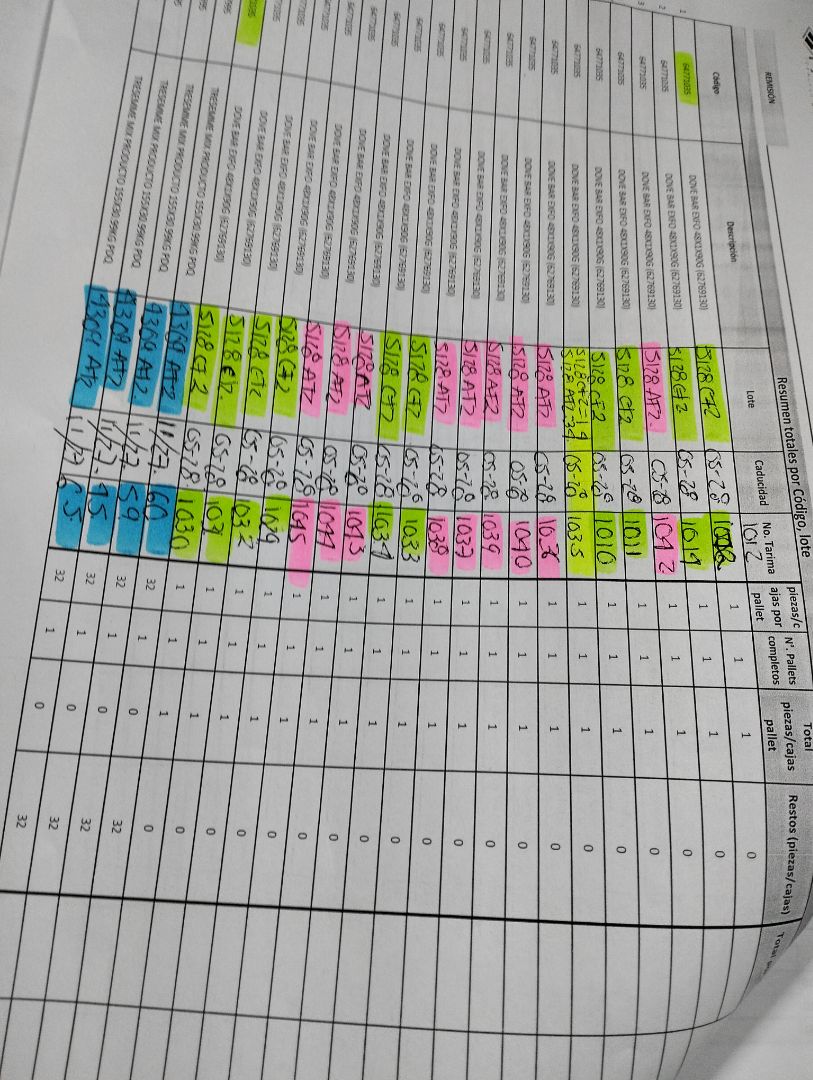 REMISIÓN
Resumen totales por Código, lote
Código Descripción Lote Caducidad No. Tarima piezas/cajas por pallet N°. Pallets completos Total piezas/cajas pallet Restos (piezas/cajas) Total
64771035 DOVE BAR EXFO 48X1X90G (62769130) 5128 CT2 05-28 1012 1 1 1 0
64771035 DOVE BAR EXFO 48X1X90G (62769130) 5128 CT2 05-28 1 1 1 0
64771035 DOVE BAR EXFO 48X1X90G (62769130) 5128 AT2. 05-28 1042 1 1 1 0
64771035 DOVE BAR EXFO 48X1X90G (62769130) 5128 CT2 05-28 1011 1 1 1 0
64771035 DOVE BAR EXFO 48X1X90G (62769130) 5128 CT2 05-28 1010 1 1 1 0
64771035 DOVE BAR EXFO 48X1X90G (62769130) 5128 CT2=19 5128 AT2=39 05-28 1035 1 1 1 0
64771035 DOVE BAR EXFO 48X1X90G (62769130) 5128 AT2 05-28 1036 1 1 1 0
64771035 DOVE BAR EXFO 48X1X90G (62769130) 5128 AT2 05-28 1040 1 1 1 0
64771035 DOVE BAR EXFO 48X1X90G (62769130) 5128 AT2 05-28 1039 1 1 1 0
64771035 DOVE BAR EXFO 48X1X90G (62769130) 5128 AT2 05-28 1037 1 1 1 0
64771035 DOVE BAR EXFO 48X1X90G (62769130) 5128 AT2 05-28 1038 1 1 1 0
64771035 DOVE BAR EXFO 48X1X90G (62769130) 5128 CT2 05-28 1033 1 1 1 0
64771035 DOVE BAR EXFO 48X1X90G (62769130) 5128 CT2 05-28 1034 1 1 1 0
64771035 DOVE BAR EXFO 48X1X90G (62769130) 5128 AT2 05-28 1043 1 1 1 0
DOVE BAR EXFO 48X1X90G (62769130) 5128 AT2 05-28 1044 1 1 1 0
DOVE BAR EXFO 48X1X90G (62769130) 5128 AT2 05-28 1045 1 1 1 0
DOVE BAR EXFO 48X1X90G (62769130) 5128 CT2 05-28 1 1 1 0
DOVE BAR EXFO 48X1X90G (62769130) 5128 CT2 05-28 1032 1 1 1 0
DOVE BAR EXFO 48X1X90G (62769130) 5128 CT2. 05-28 1031 1 1 1 0
5128 CT2 05-28 1030 1 1 1 0
TRESEMME MIX PRODUCTO 155X30.99KG PDQ 4364 AT2 11/27 60 32 1 0 32
TRESEMME MIX PRODUCTO 155X30.99KG PDQ 4364 AT2. 11/27 59 32 1 0 32
TRESEMME MIX PRODUCTO 155X30.99KG PDQ 4364 AT2 11/27. 95 32 1 0 32
TRESEMME MIX PRODUCTO 155X30.99KG PDQ 4364 AT2 11/27 65 32 1 0 32